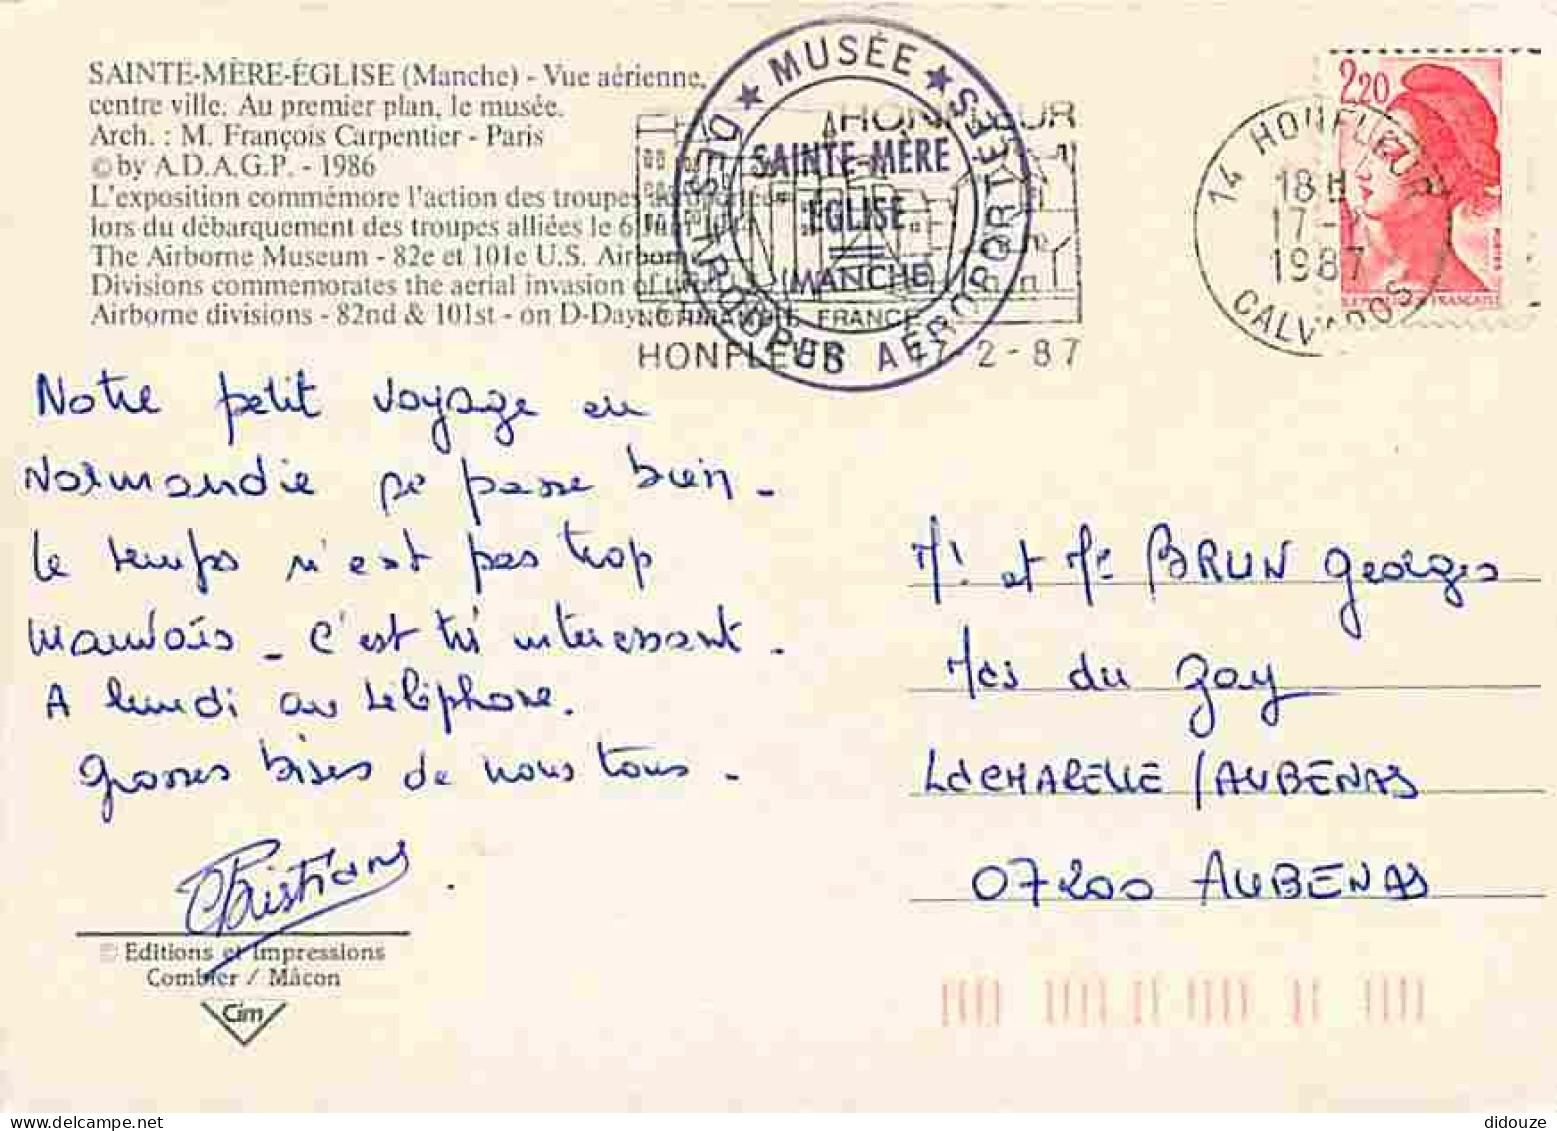 SAINTE-MÈRE-ÉGLISE (Manche) - Vue aérienne,
centre ville. Au premier plan, le musée.
Arch. : M. François Carpentier - Paris
© by A.D.A.G.P. - 1986
L'exposition commémore l'action des troupes
lors du débarquement des troupes alliées le 6 Juin
The Airborne Museum - 82e et 101e U.S. Airborne
Divisions commemorates the aerial invasion of two
Airborne divisions - 82nd & 101st - on D-Day, 6 June
★ MUSÉE ★
DES TROUPES AÉROPORTÉES
SAINTE-MÈRE
ÉGLISE
(MANCHE)
HONFLEUR
NORMANDIE FRANCE
HONFLEUR 17-2-87
2,20
14 HONFLEUR
18 H
17-2
1987
CALVADOS
Notre petit voyage en
Normandie se passe bien -
le temps n'est pas trop
mauvais - C'est très intéressant -
A lundi au téléphone.
grosses bises de nous tous -
Christiane
Mr et Me BRUN Georges
Mas du Gay
LACHAPELLE / AUBENAS
07200 AUBENAS
© Editions et Impressions
Combier / Mâcon
Cim
didouze